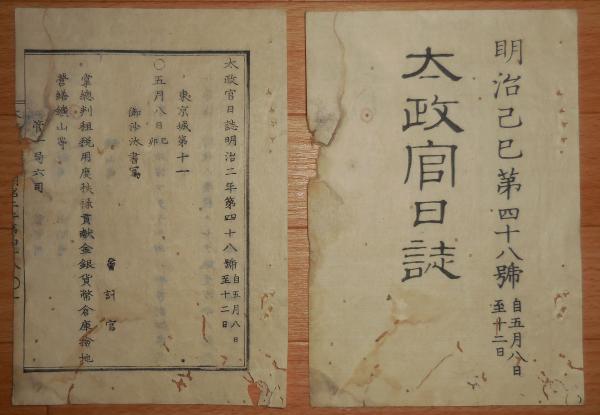 明治己巳第四十八號 自五月八日 至十二日
太政官日誌
太政官日誌明治二年第四十八號 自五月八日 至十二日
東京城第十一
〇五月八日 己卯
御沙汰書寫
會計官
掌總判租税用度秩禄貢獻金銀貨幣倉庫營地
營繕鑛山等
管 一局六司